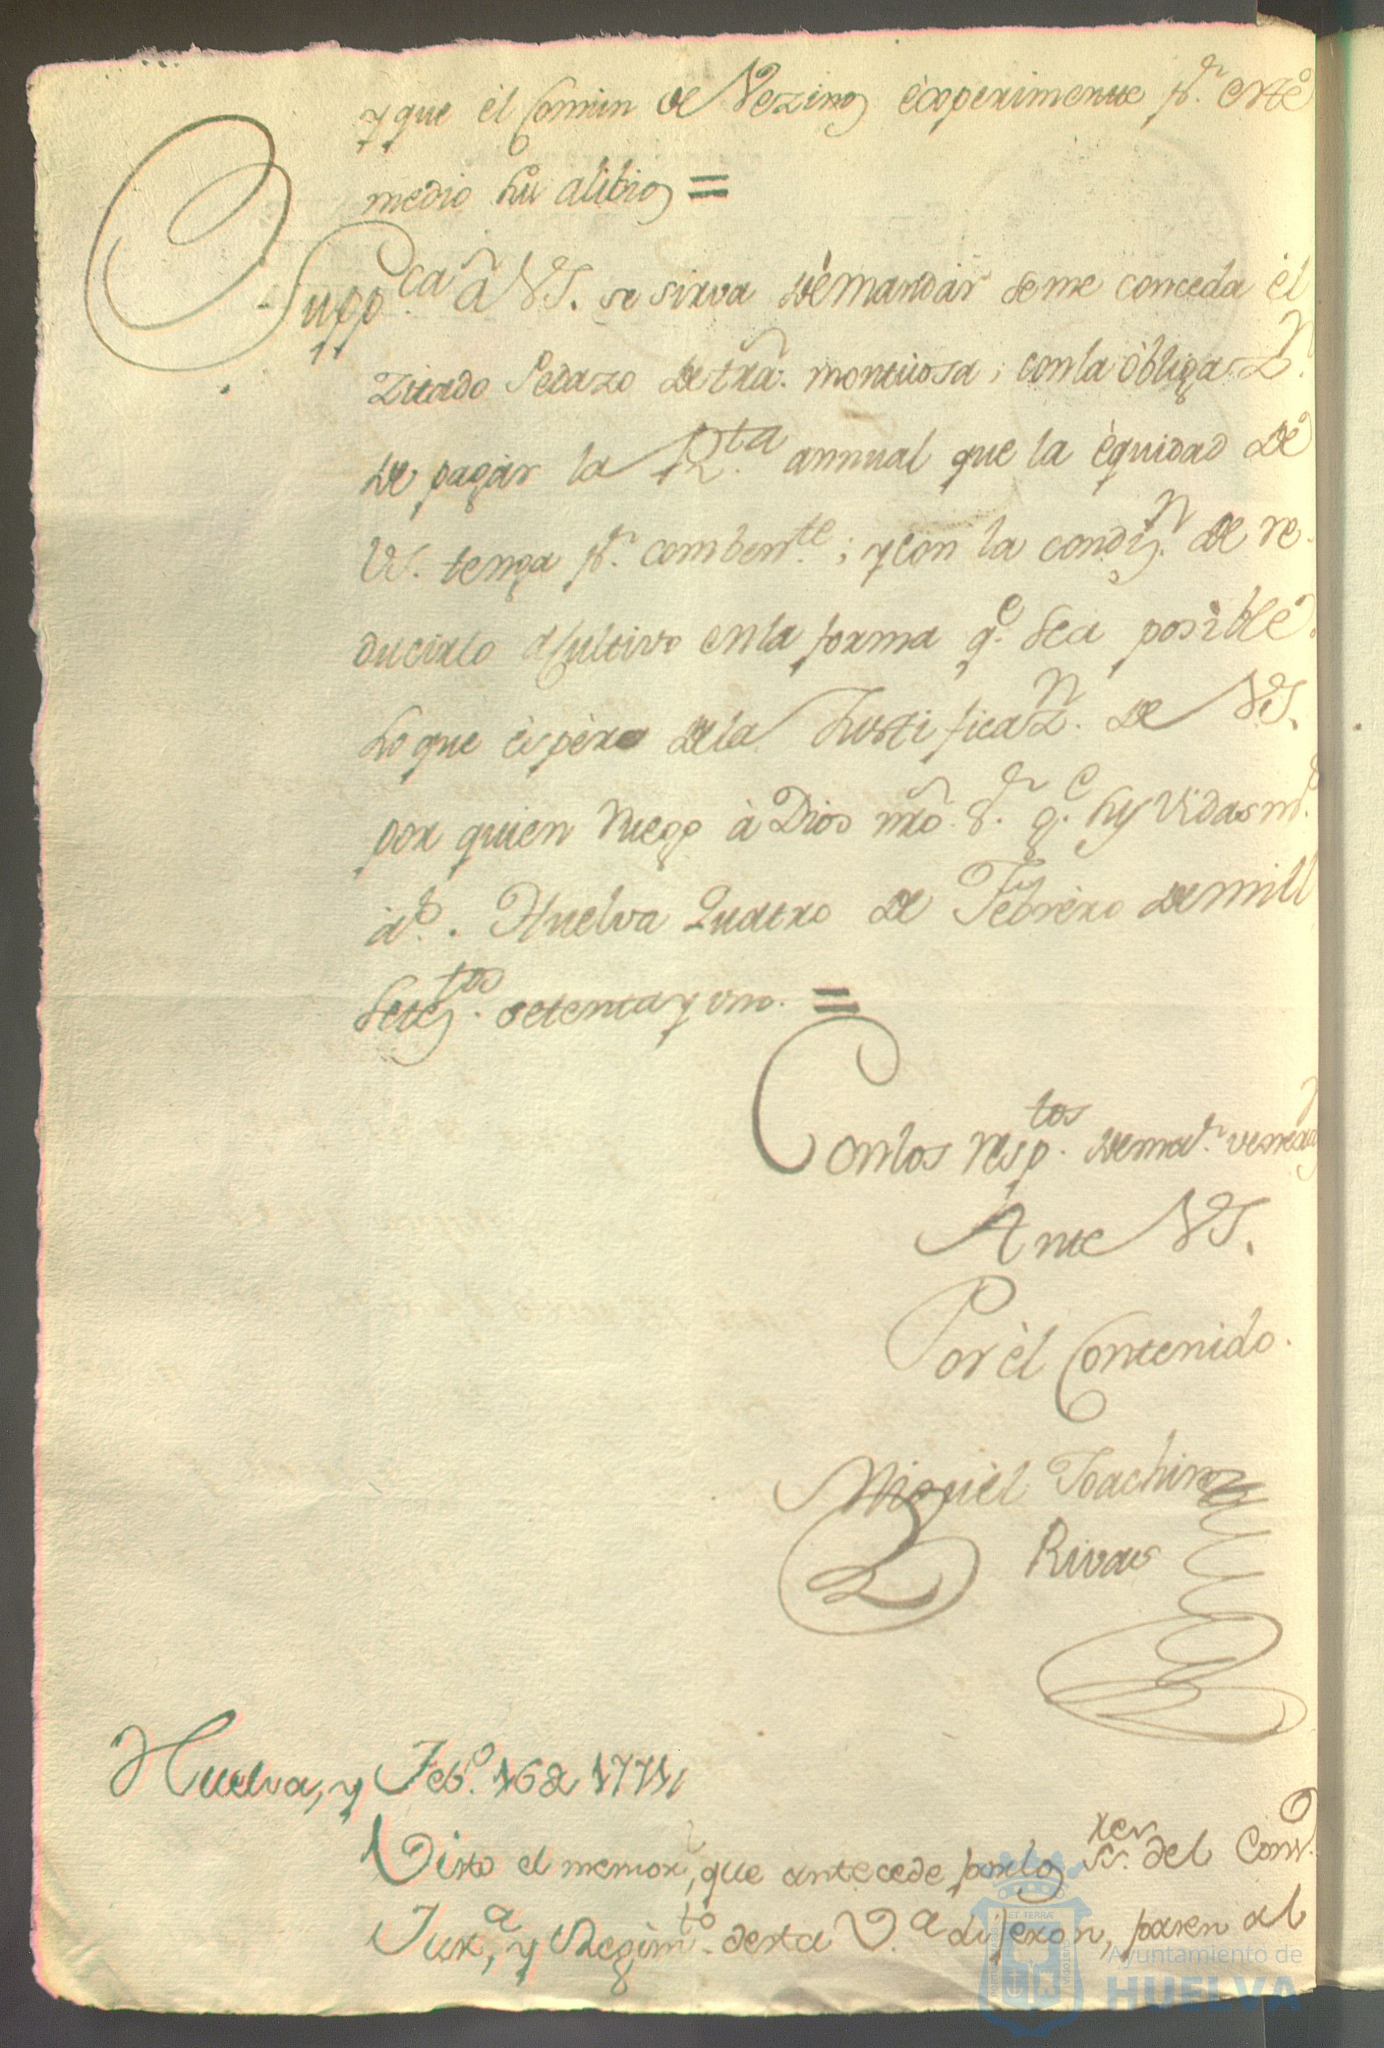 y que èl Comun de Vezinos èxperimente pr. este
medio su alibio =
Suppca. à VS. se sirva demandàr seme conceda èl
Zitado Pedazo de trra. montuosa; con la òbligazn.
de pagàr la Rta. annual que la èquidad de
VS. tenga pr. combente.; y con la condizn. de re-
ducirlo àCultivo en la forma qe. sea posible.
Lo que èspèro de la Justificazn. de VS.
por quien ruego à Dios nro. Sr. ge. sus Vidas ms.
às. Huelva Quatro de Febrèro de mill
Setectos. setenta y uno. =
Con los respetos. de mar. venerazn
Ante VS.
Por èl Contenido.
Miguèl Joachin
Rivas
Huelva, y Febo. 16 de 1771,
Visto el memorl, que antecede por los Sres. del Conso.
Jusa, y Regimto. desta Va. dijeron, pasen al
ET TERRÆ
Ayuntamiento de
HUELVA